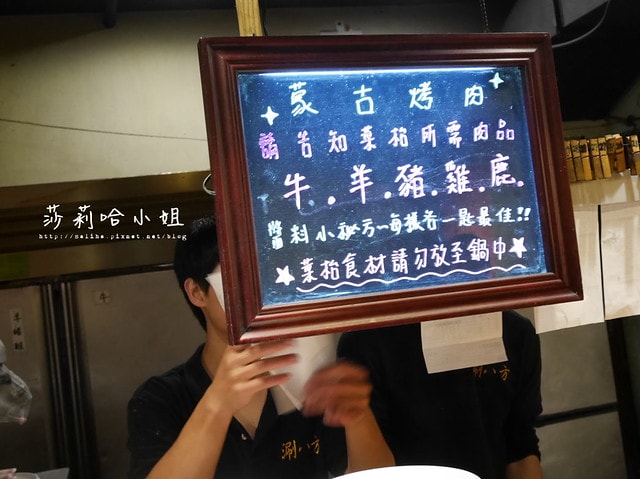 蒙古烤肉
請告知菜格所需肉品
牛.羊.豬.雞.鹿.
醬料小秘方~每樣各一匙最佳!!
菜格食材請勿放至鍋中
莎莉哈小姐
http://saliha.pixnet.net/blog
涮八方
涮八方
牛